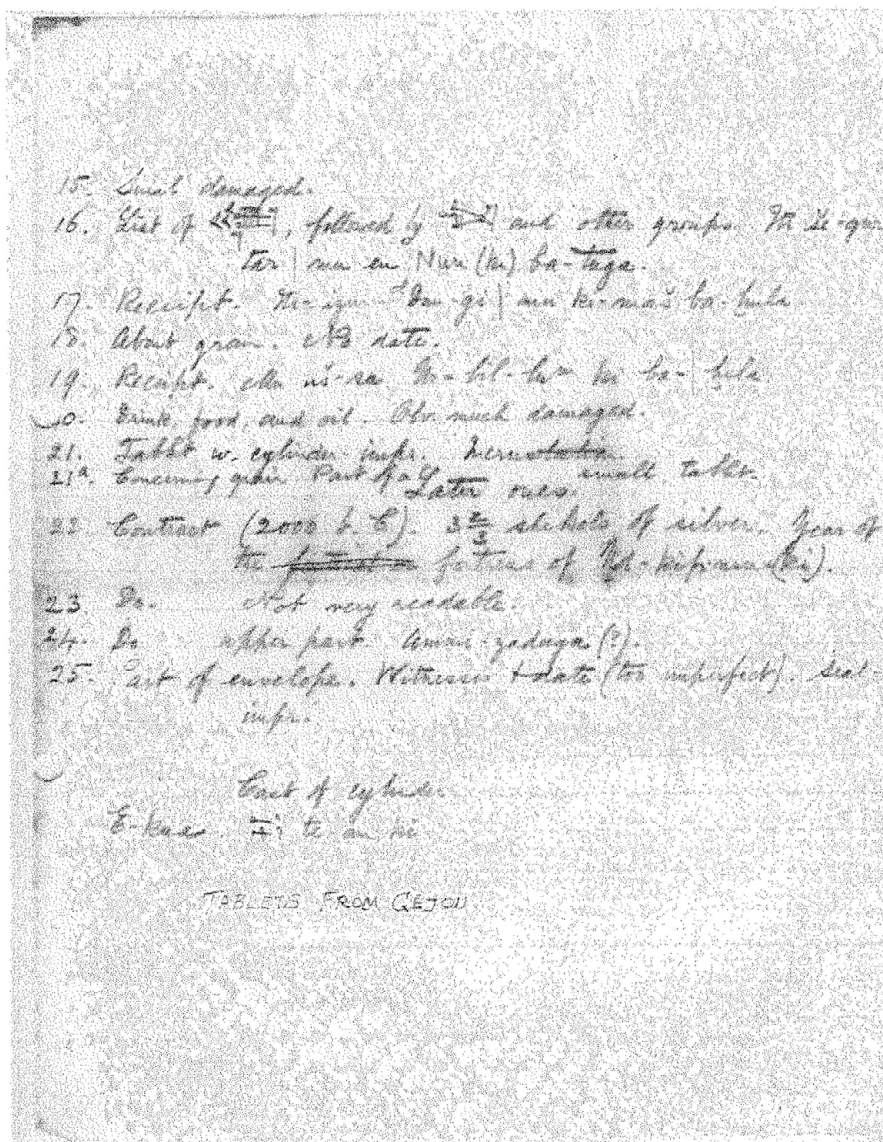 15. Small damaged.
16. List of , followed by and other groups. Itu Še-gur
tar | mu en Nun (ki) ba-tuga.
17. Receipt. | mu ki-maš ba-hula
18. About grain. No date.
19. Receipt. ki ba-|hula
0. Drink, food, and oil. Obv. much damaged.
21. Tablet w. cylinder-impr.
21a. Concerning grain Part of a small tablet.
Later ones.
22 Contract (2000 b. C). 3 2/3 shekels of silver. Year of
the fortress of (ki).
23. Do. Not very readable
24. Do upper part. Ammi-zaduga (?).
25. Part of envelope. Witnesses + date (too imperfect). Seal-
impr.
Cast of cylinder
te an ki
TABLETS FROM QEJOU